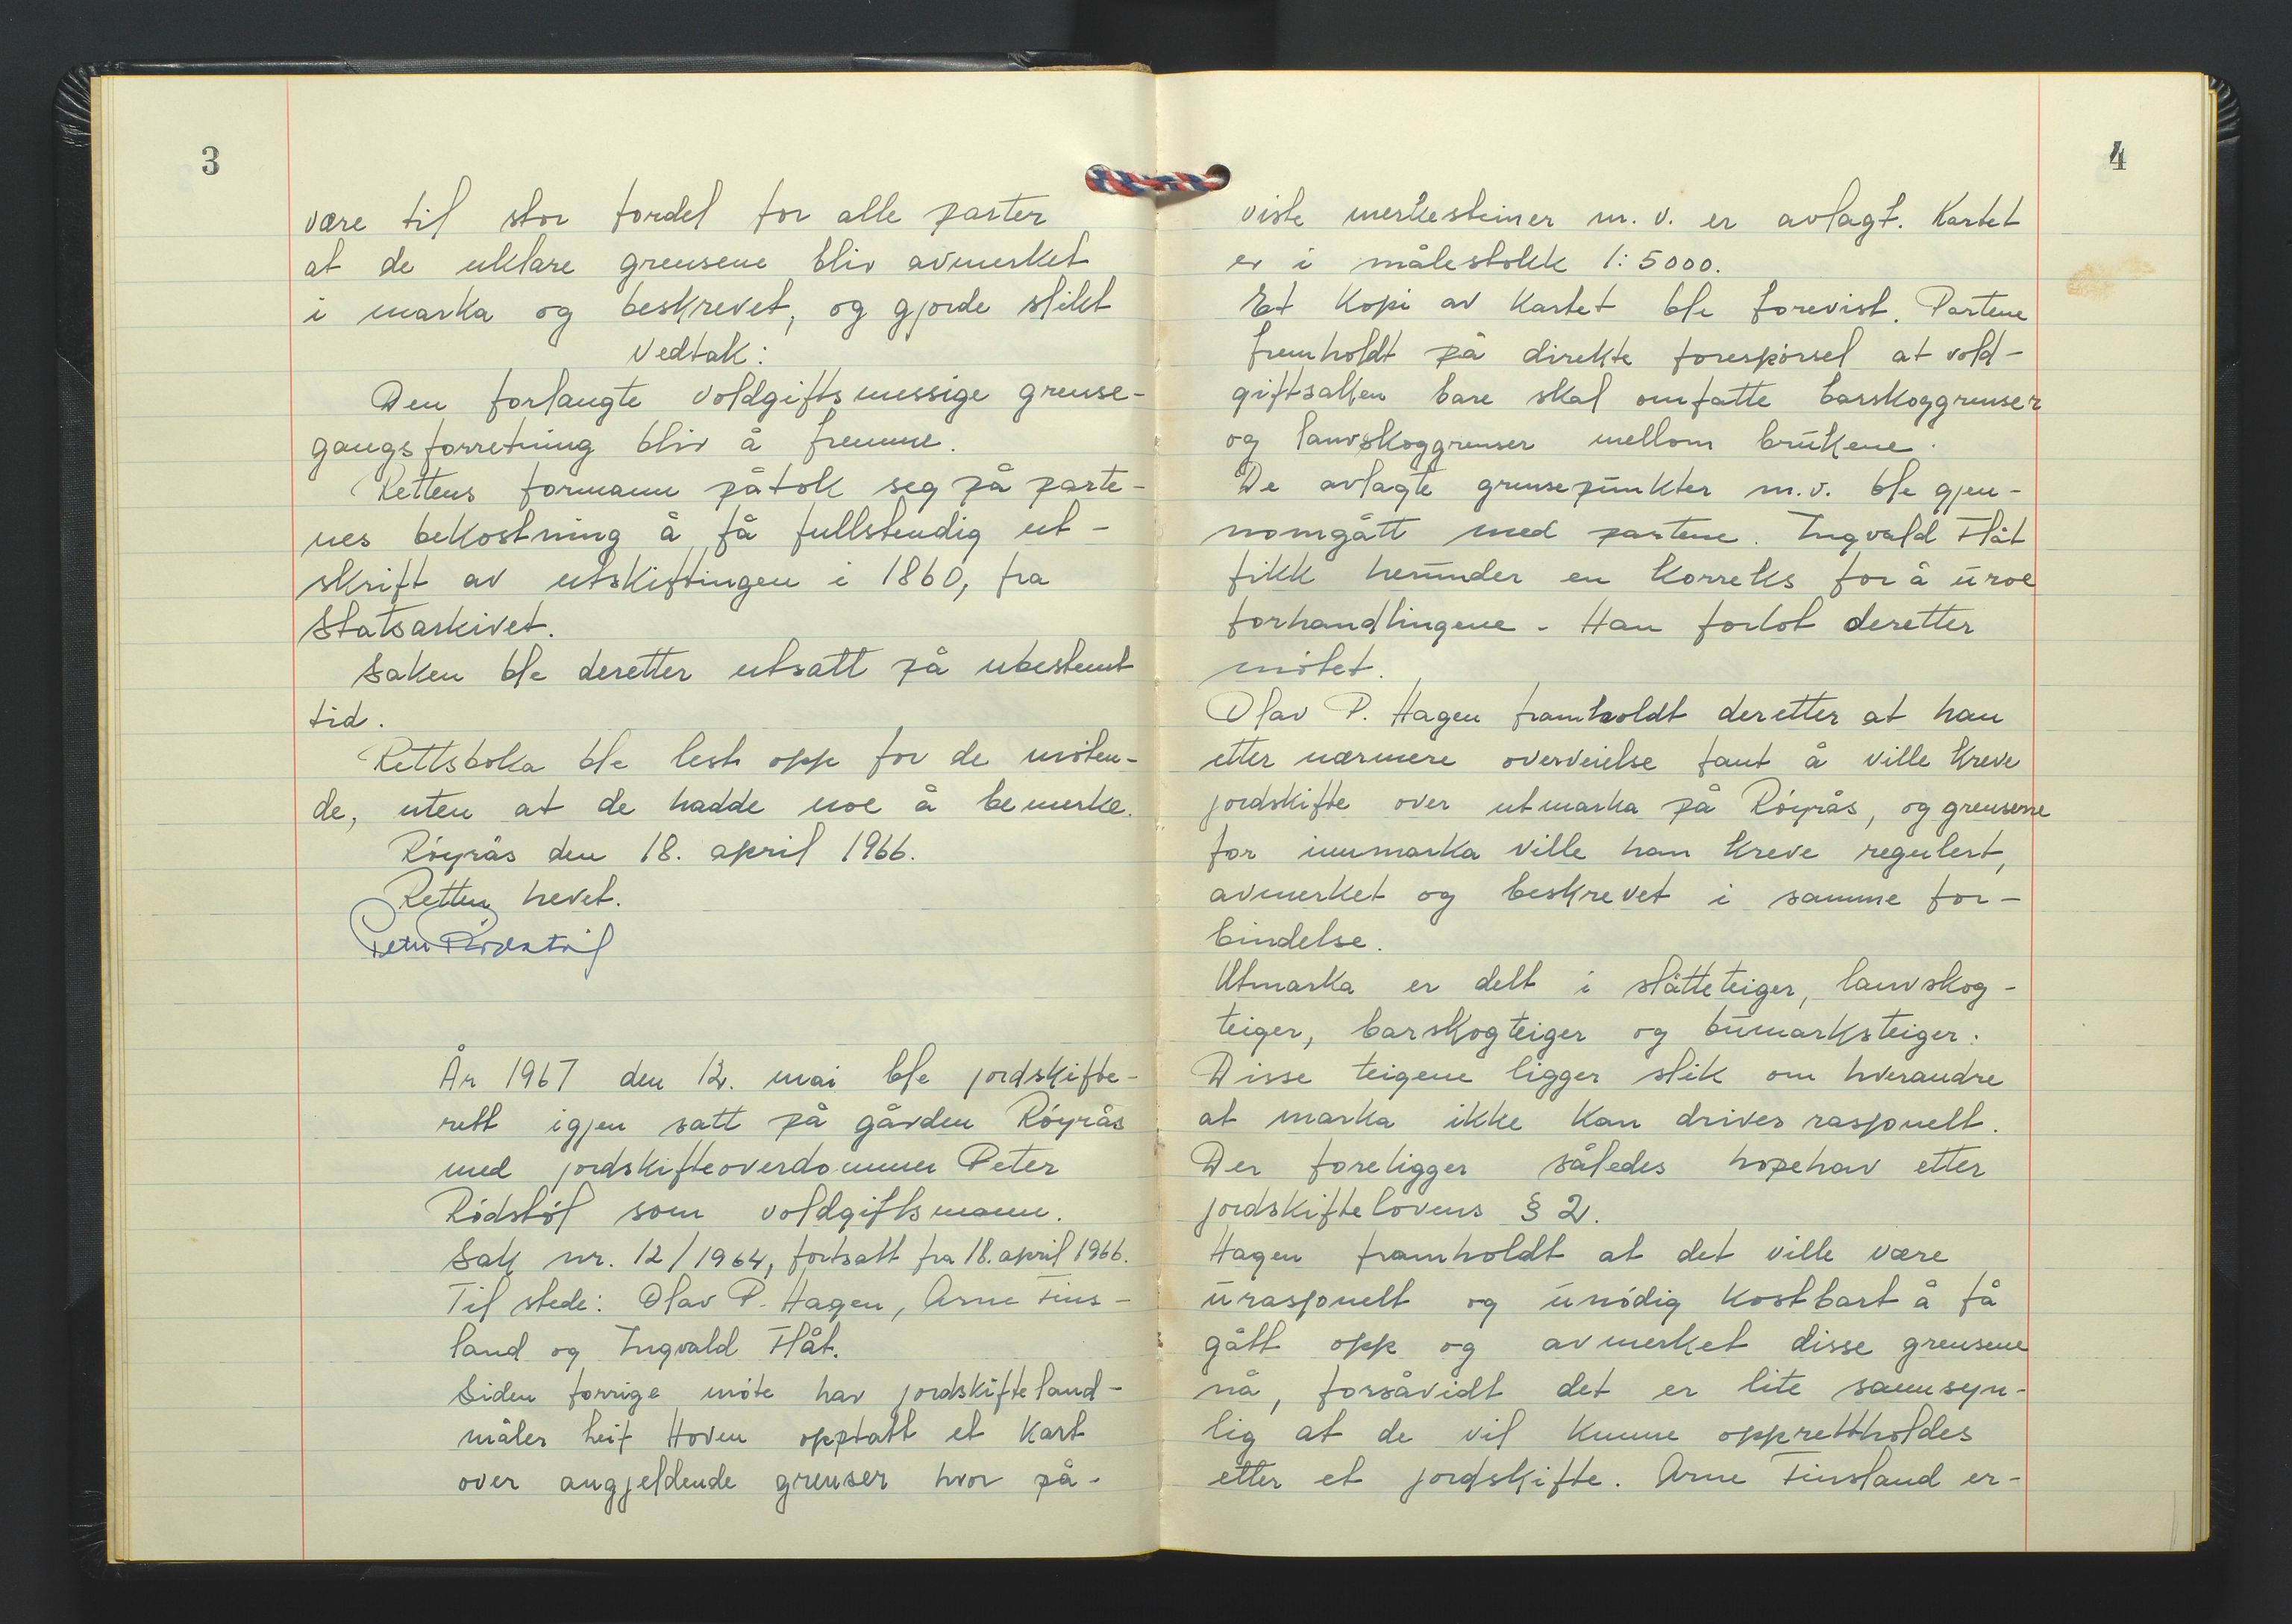 3
være til stor fordel for alle parter
at de uklare grensene bliv avmerket
i marka og beskrevet, og gjorde slikt
Vedtak:
Den forlangte voldgiftsmessige grense-
gangsforretning bliv å fremme.
Rettens formann påtok seg på parte-
nes bekostning å få fullstendig ut-
skrift av utskiftingen i 1860, fra
Statsarkivet.
Saken ble deretter utsatt på ubestemt
tid.
Rettsboka ble lest opp for de møten-
de, uten at de hadde noe å bemerke.
Røyrås den 18. april 1966.
Retten hevet.
Peter Rødstøl
År 1967 den 12. mai ble jordskifte-
rett igjen satt på gården Røyrås
med jordskifteoverdommer Peter
Rødstøl som voldgiftsmann.
Sak nr. 12/1964, fortsatt fra 18. april 1966.
Til stede: Olav P. Hagen, Arne Fins-
land og Ingvald Flåt.
Siden forrige møte har jordskifteland-
måler Leif Hoven opptatt et kart
over angjeldende grenser hvor på-
4
viste merkesteiner m.v. er avlagt. Kartet
er i målestokk 1:5000.
Et kopi av kartet ble forevist. Partene
fremholdt på direkte forespørsel at vold-
giftsaken bare skal omfatte barskoggrenser
og lauvskoggrenser mellom brukene.
De avlagte grensepunkter m.v. ble gjen-
nomgått med partene. Ingvald Flåt
fikk herunder en korreks for å uroe
forhandlingene. Han forlot deretter
møtet.
Olav P. Hagen framholdt deretter at han
etter nærmere overveielse fant å ville kreve
jordskifte over utmarka på Røyrås, og grensene
for innmarka ville han kreve regulert,
avmerket og beskrevet i samme for-
bindelse.
Utmarka er delt i slåtteteiger, lauvskog-
teiger, barskogteiger og bumarksteiger.
Disse teigene ligger slik om hverandre
at marka ikke kan drives rasjonelt.
Der foreligger således hopehav etter
jordskiftelovens § 2.
Hagen framholdt at det ville være
urasjonelt og unødig kostbart å få
gått opp og avmerket disse grensene
nå, forsåvidt det er lite sannsyn-
lig at de vil kunne opprettholdes
etter et jordskifte. Arne Finsland er-